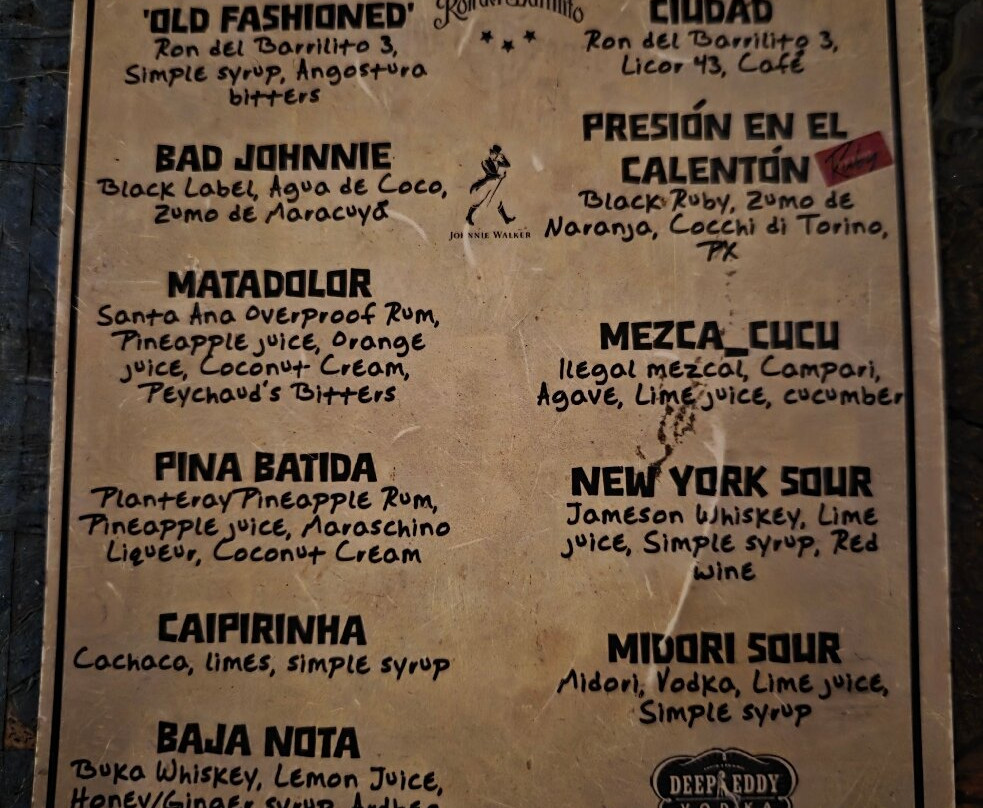 'OLD FASHIONED'
Ron del Barrilito 3,
Simple syrup, Angostura
bitters
BAD JOHNNIE
Black Label, Agua de Coco,
Zumo de Maracuyá
MATADOLOR
Santa Ana Overproof Rum,
Pineapple juice, Orange
juice, Coconut Cream,
Peychaud's Bitters
PINA BATIDA
Planteray Pineapple Rum,
Pineapple juice, Maraschino
Liqueur, Coconut Cream
CAIPIRINHA
Cachaca, limes, simple syrup
BAJA NOTA
Buka Whiskey, Lemon Juice,
Honey/Ginger syrup, Ardbeg
Ron del Barrilito
JOHNNIE WALKER
CIUDAD
Ron del Barrilito 3,
Licor 43, Café
PRESIÓN EN EL
CALENTÓN
Ruby
Black Ruby, Zumo de
Naranja, Cocchi di Torino,
PX
MEZCA_CUCU
Ilegal mezcal, Campari,
Agave, Lime juice, cucumber
NEW YORK SOUR
Jameson Whiskey, Lime
juice, Simple syrup, Red
wine
MIDORI SOUR
Midori, Vodka, Lime juice,
Simple syrup
DEEP EDDY
VODKA